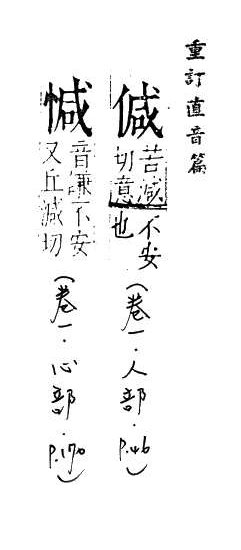 重訂直音篇
㒎 苦減切意不安也（卷一．人部．P.46）
㦿 音歉不安又丘減切（卷一．心部．P.170）